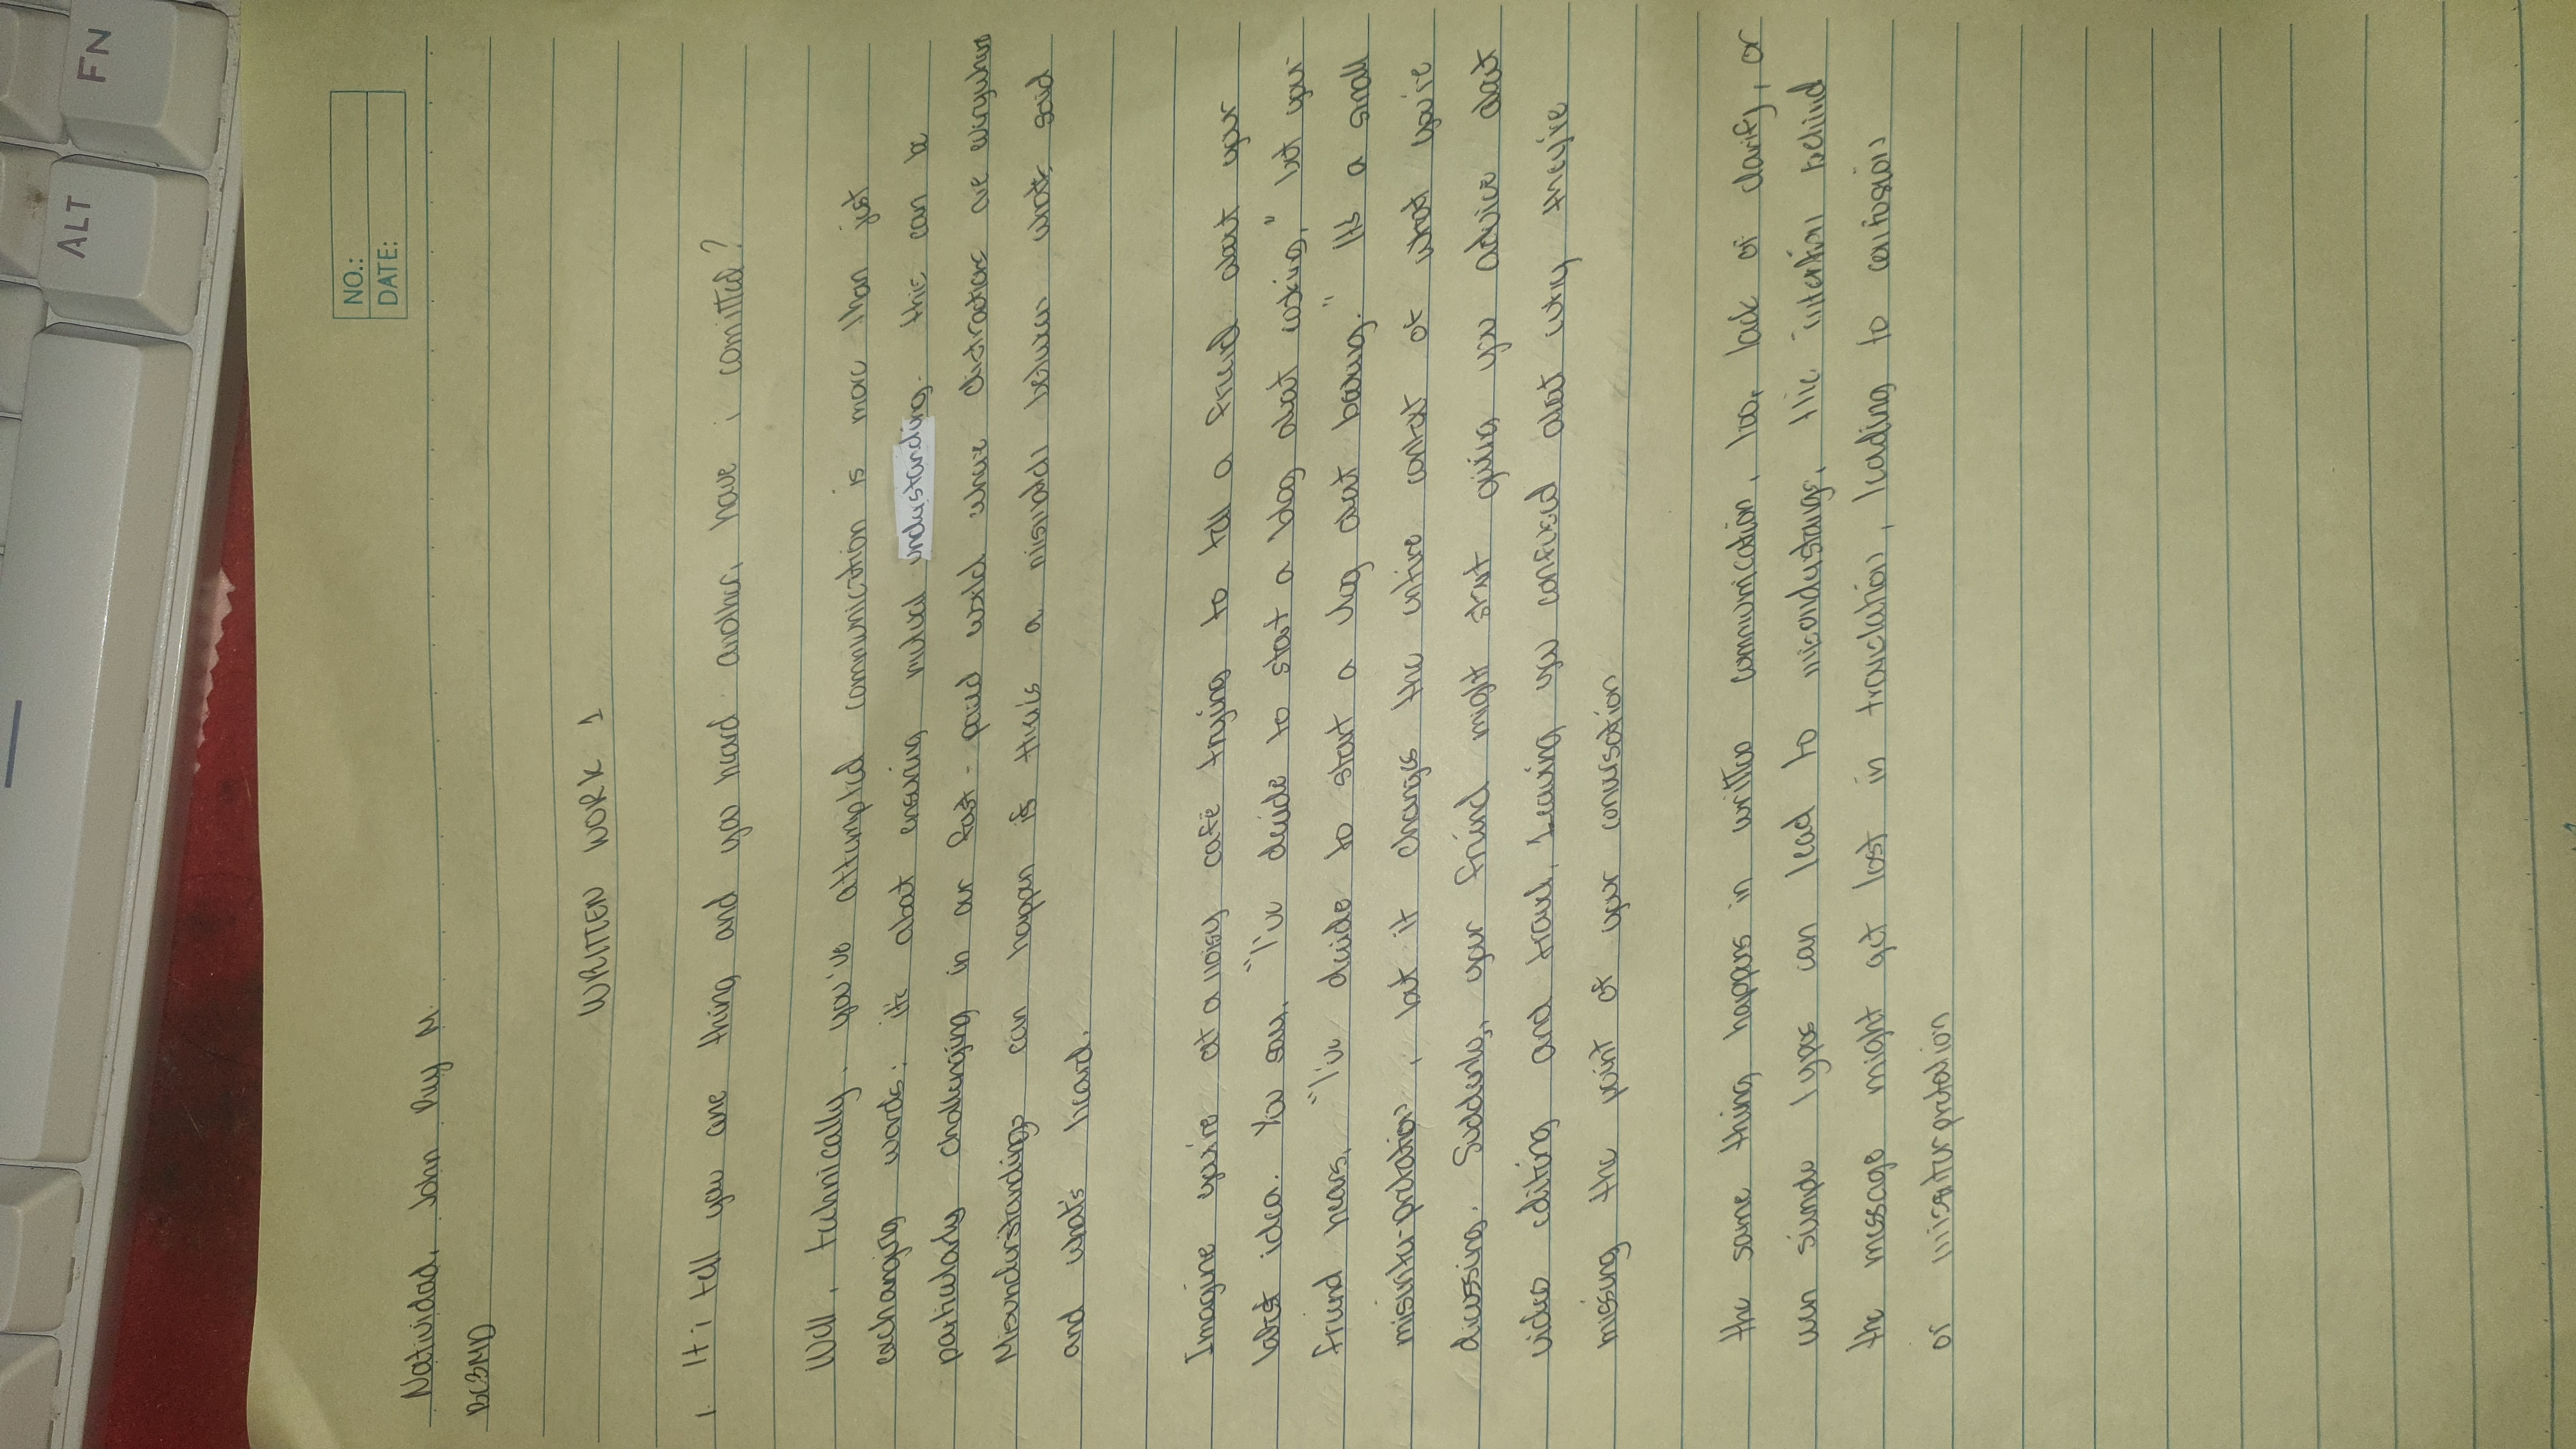 ALT
FN
NO.:
DATE:
Natividad, John Ruy M.
BC3MD
WRITTEN WORK 1
1. If i tell you one thing and you heard another, have i comitted?
Well, technically, you've attempted communication is more than just
exchanging words; it's about ensuring mutual understanding. this can be
particularly challenging in our fast-paced world where distractions are everywhere
Misunderstandings can happen if there's a mismatch between what's said
and what's heard.
Imagine you're at a noisy café trying to tell a friend about your
latest idea. You say, "I've decide to start a blog about cooking," but your
friend hears, "I've decide to start a vlog about." It's a small
misinter-pretation, but it changes the entire context of what you're
dicussing. Suddenly, your friend might start giving you advice about
video editing and travel, Leaving you confused about why they're
missing the point of your conversation
the same thing happens in written communication, too, lack of clarify, or
even simple typos can lead to misunderstangs, the intention behind
the message might get lost in translation, leading to confusion
or missiterpretation